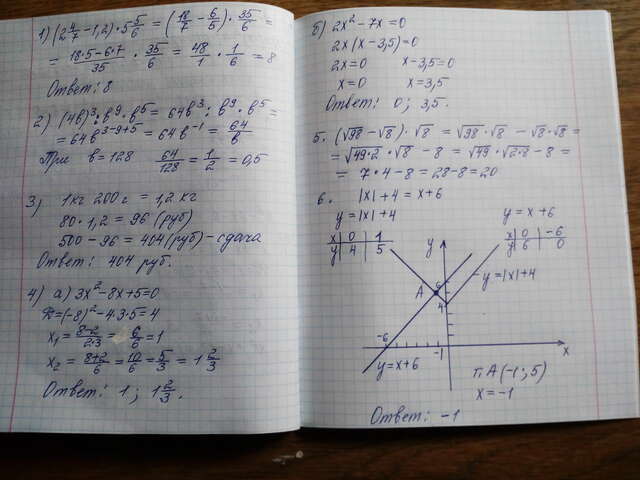 1) (2 4/7 - 1,2) · 5 5/6 = (18/7 - 6/5) · 35/6 =
= (18·5 - 6·7)/35 · 35/6 = 48/1 · 1/6 = 8
Ответ: 8
2) (4в)³ : в⁹ · в⁵ = 64в³ : в⁹ · в⁵ =
= 64в³⁻⁹⁺⁵ = 64в⁻¹ = 64/в
При в = 128 64/128 = 1/2 = 0,5
3) 1 кг 200 г = 1,2 кг
80 · 1,2 = 96 (руб)
500 - 96 = 404 (руб) - сдача
Ответ: 404 руб.
4) а) 3x² - 8x + 5 = 0
= (-8)² - 4·3·5 = 4
x₁ = (8-2)/(2·3) = 6/6 = 1
x₂ = (8+2)/6 = 10/6 = 5/3 = 1 2/3
Ответ: 1; 1 2/3.
б) 2x² - 7x = 0
2x(x - 3,5) = 0
2x = 0 x - 3,5 = 0
x = 0 x = 3,5
Ответ: 0; 3,5.
5. (√98 - √8) · √8 = √98 · √8 - √8 · √8 =
= √49·2 · √8 - 8 = √49 · √2·8 - 8 =
= 7 · 4 - 8 = 28 - 8 = 20
6. |x| + 4 = x + 6
y = |x| + 4 y = x + 6
x | 0 | 1 x | 0 | -6
y | 4 | 5 y | 6 | 0
y
y = |x| + 4
A
4
-6 -1 x
y = x + 6
т. A (-1; 5)
x = -1
Ответ: -1